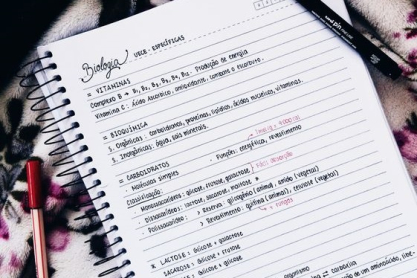 Biologia UECE - ESPECÍFICAS
= VITAMINAS
Complexo B → B1, B2, B3, B5, B12 : Produção de energia
Vitamina C : Ácido Ascórbico, antioxidante, combate o escorbuto.
= BIOQUÍMICA
1. Orgânicas : carboidratos, proteínas, lipídios, ácidos nucleicos, vitaminas.
2. Inorgânicas : água, sais minerais.
= CARBOIDRATOS
- Moléculas simples - Funções : energética, revestimento
Classificação:
- Monossacarídeos : glicose, frutose, galactose } fácil absorção
- Dissacarídeos : lactose, sacarose, maltose
- Polissacarídeos : > Reserva : glicogênio (animal), amido (vegetal)
> Revestimento : quitina (animal), celulose (vegetal)
↳ + funções
* LACTOSE : Glicose + galactose
SACAROSE : Glicose + frutose
: Glicose + glicose
carbônico
de um aminoácido,